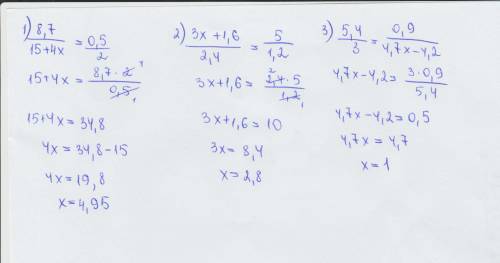 1) 8,7/(15+4x) = 0,5/2
15+4x = 8,7·2/0,5
15+4x = 34,8
4x = 34,8-15
4x = 19,8
x = 4,95
2) (3x+1,6)/2,4 = 5/1,2
3x+1,6 = 2,4·5/1,2
3x+1,6 = 10
3x = 8,4
x = 2,8
3) 5,4/3 = 0,9/(4,7x-4,2)
4,7x-4,2 = 3·0,9/5,4
4,7x-4,2 = 0,5
4,7x = 4,7
x = 1